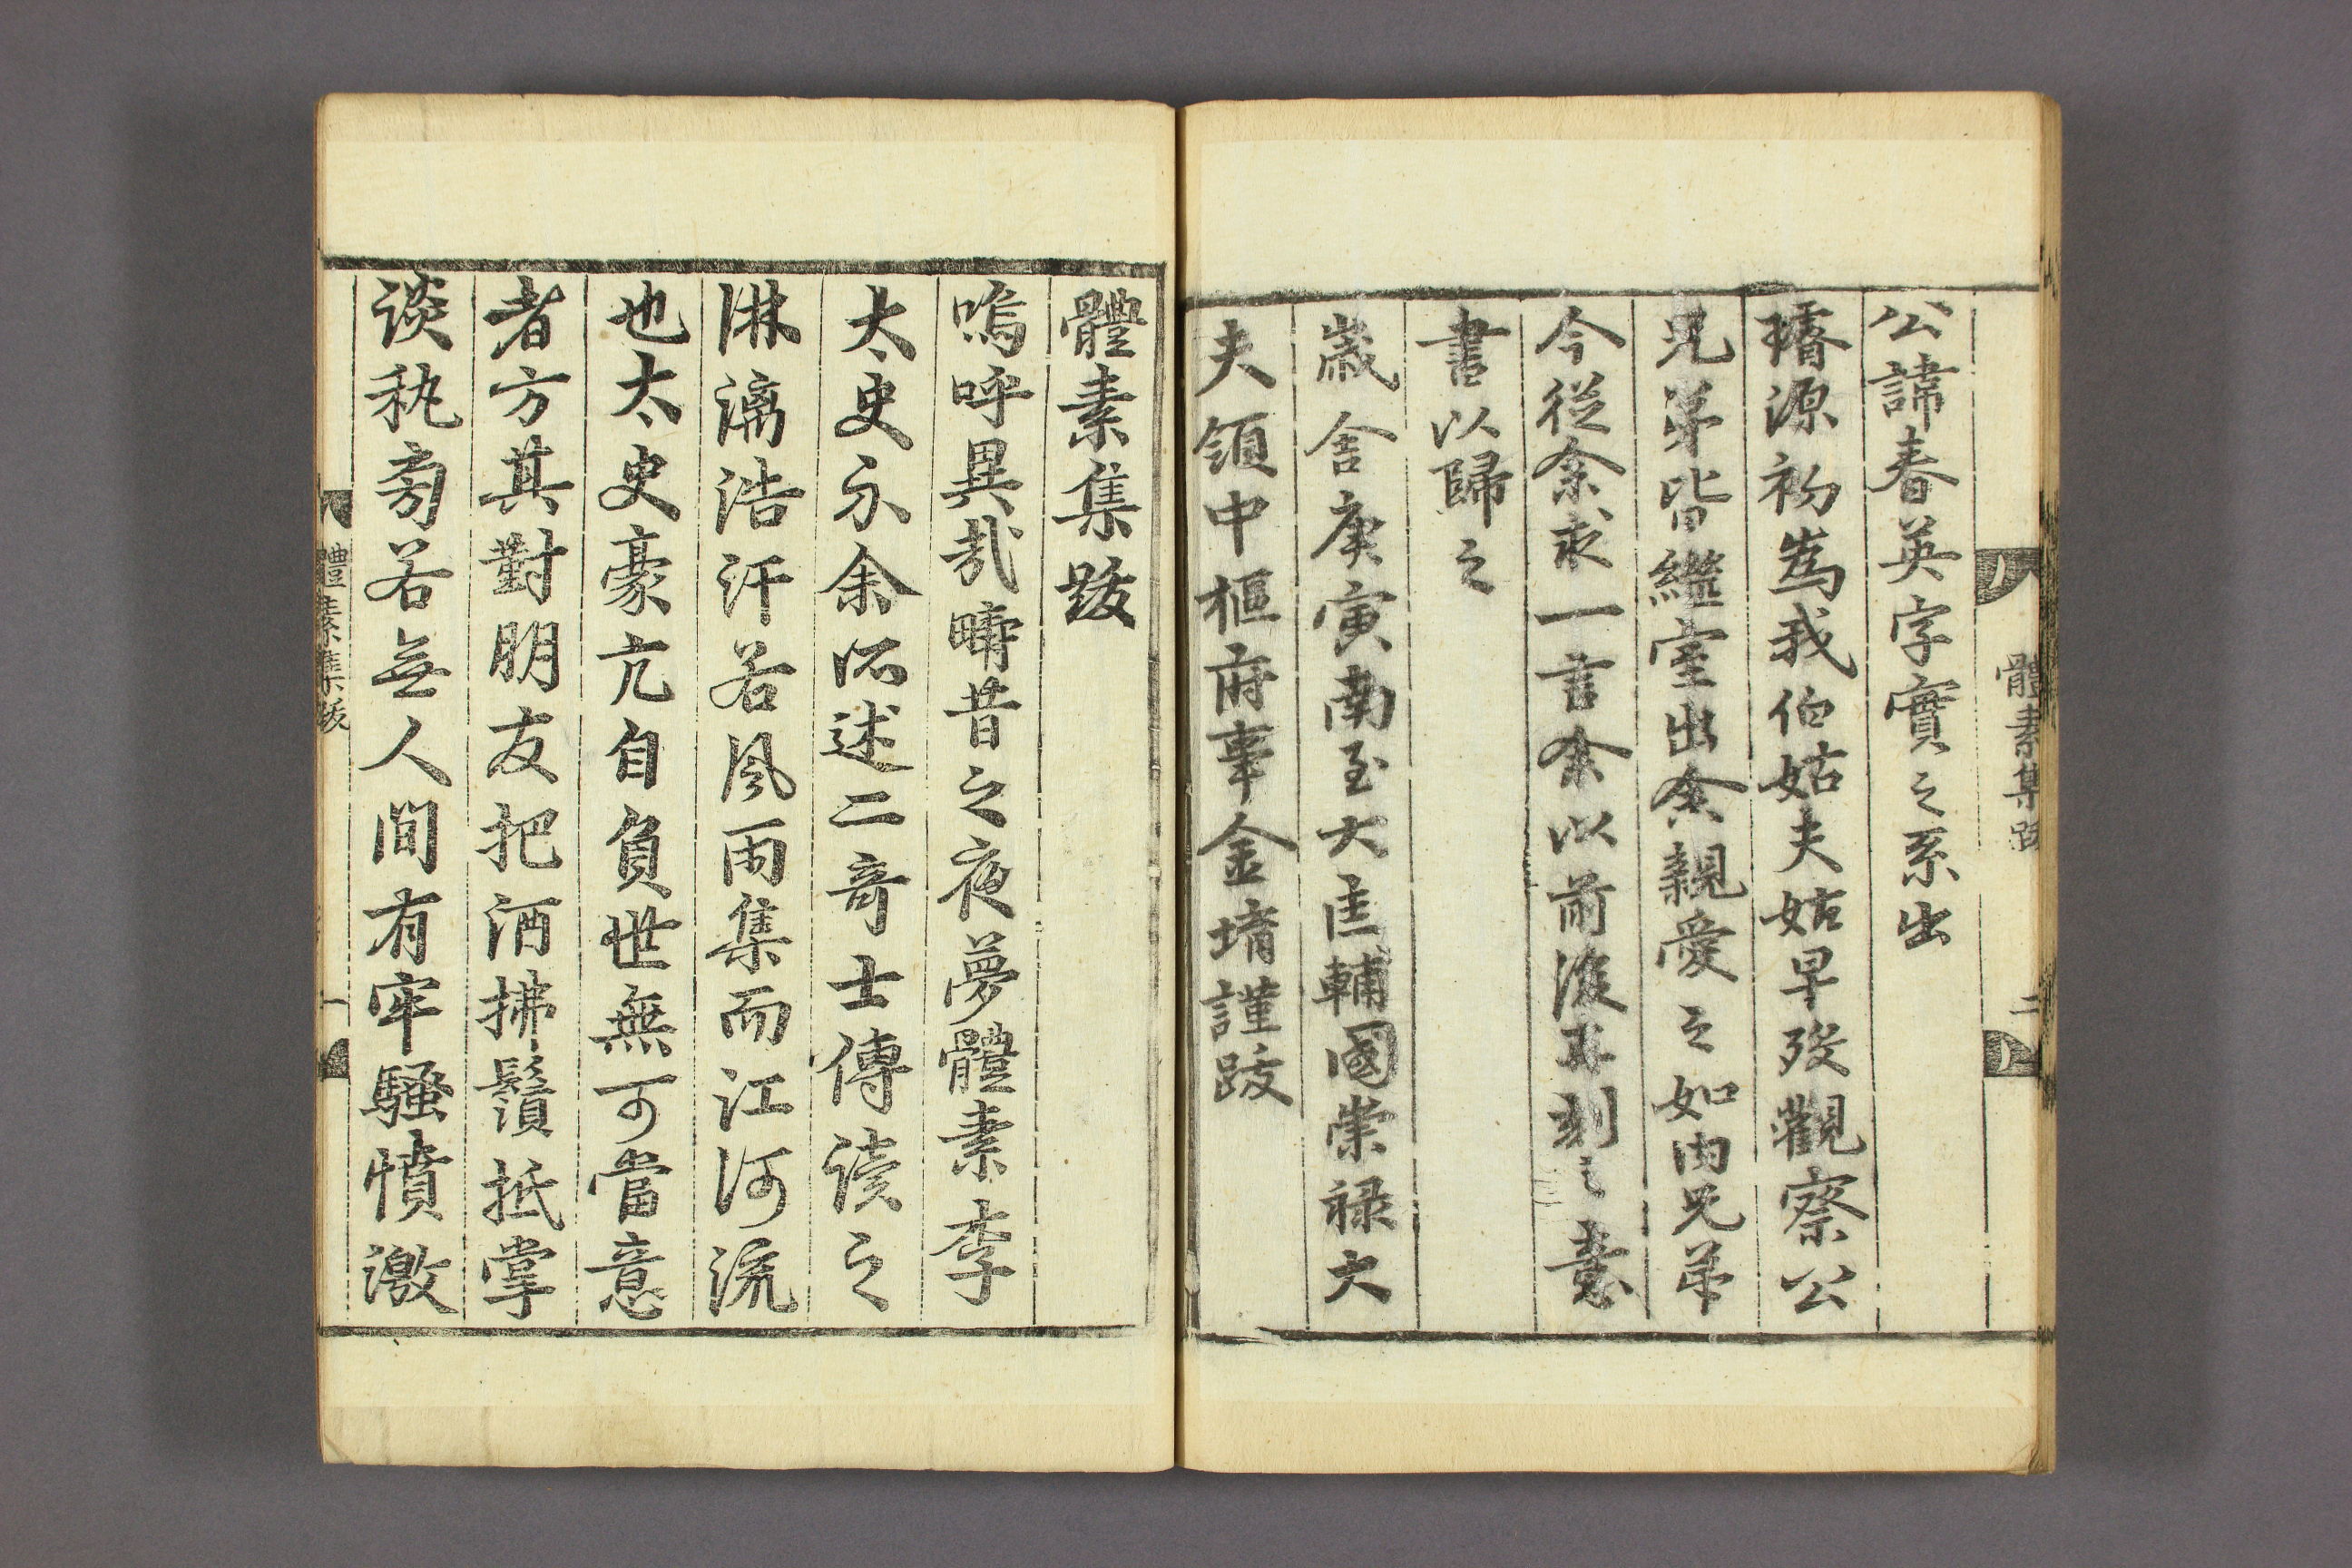 體素集跋
二
公諱春英字實之系出
璿源初爲我伯姑夫姑早歿觀察公
兄弟皆繼室出余親愛之如內兄弟
今從余求一言余以前後再刻之意
書以歸之
歲舍庚寅南至大匡輔國崇祿大
夫領中樞府事金堉謹跋
體素集跋
嗚呼異哉疇昔之夜夢體素李
太史示余所述二奇士傳讀之
淋漓浩汗若風雨集而江河流
也太史豪亢自負世無可當意
者方其對朋友把酒拂鬚抵掌
談執旁若無人間有牢騷憤激
體素集跋
一